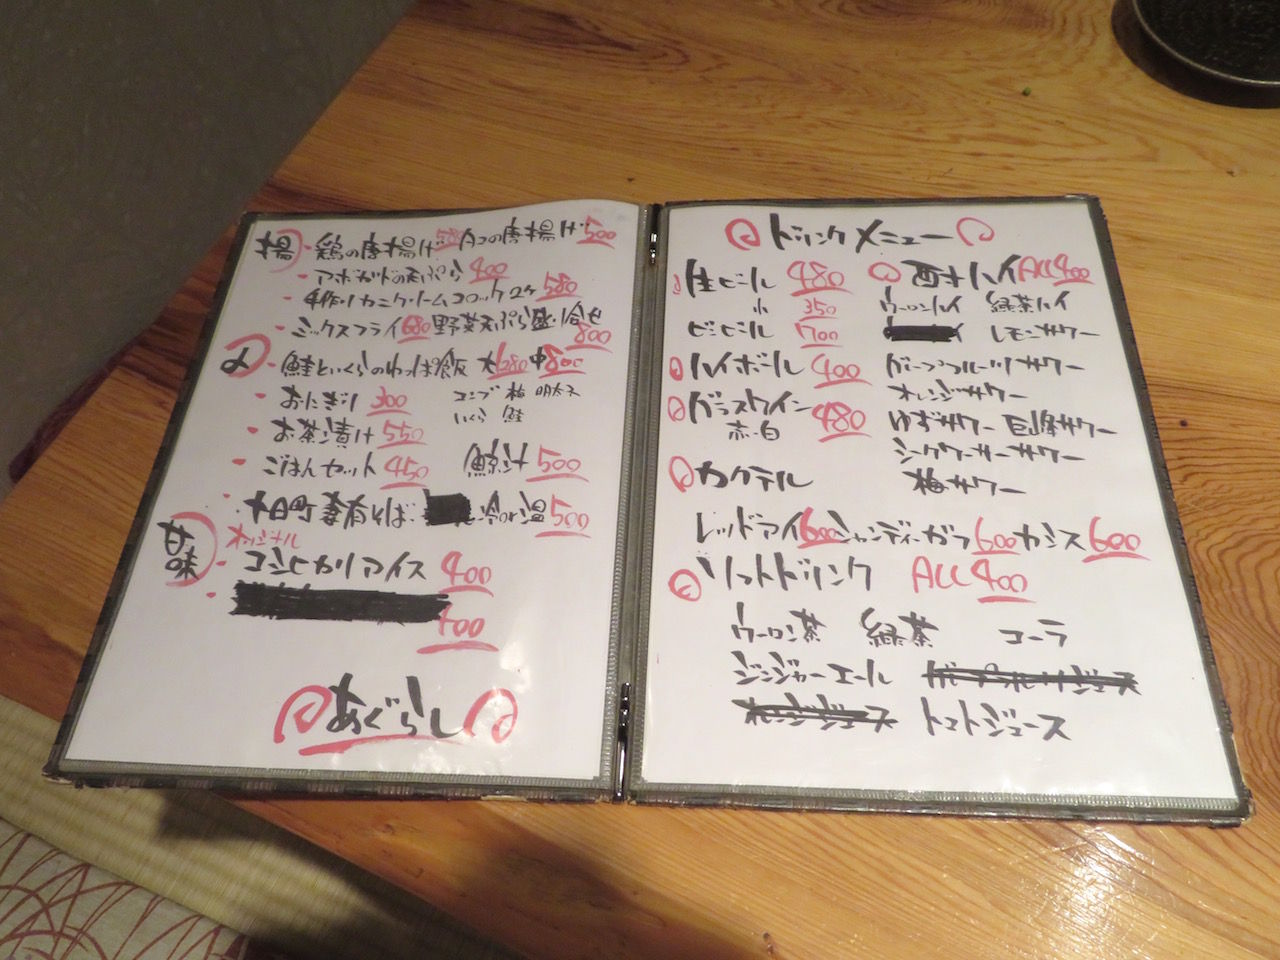 揚
・鶏の唐揚げ 580 タコの唐揚げ 500
・アボガドの天ぷら 400
・手作りカニクリームコロッケ2ヶ 580
・ミックスフライ 680 野菜天ぷら盛り合せ 800
〆
・鮭といくらのわっぱ飯 大1280 中800
・おにぎり 300 コンブ 梅 明太子
いくら 鮭
・お茶漬け 550
・ごはんセット 450 鯨汁 500
・十日町妻有そば 冷or温 500
甘味
オリジナル
・コシヒカリアイス 400
400
あぐらし
ドリンクメニュー
生ビール 480
小 350
ビンビール 700
ハイボール 400
グラスワイン 480
赤・白
カクテル
酎ハイ ALL 400
ウーロンハイ 緑茶ハイ
レモンサワー
グレープフルーツサワー
オレンジサワー
ゆずサワー 巨峰サワー
シークワーサーサワー
梅サワー
レッドアイ 600 シャンディーガフ 600 カシス 600
ソフトドリンク ALL 400
ウーロン茶 緑茶 コーラ
ジンジャーエール グレープフルーツジュース
オレンジジュース トマトジュース